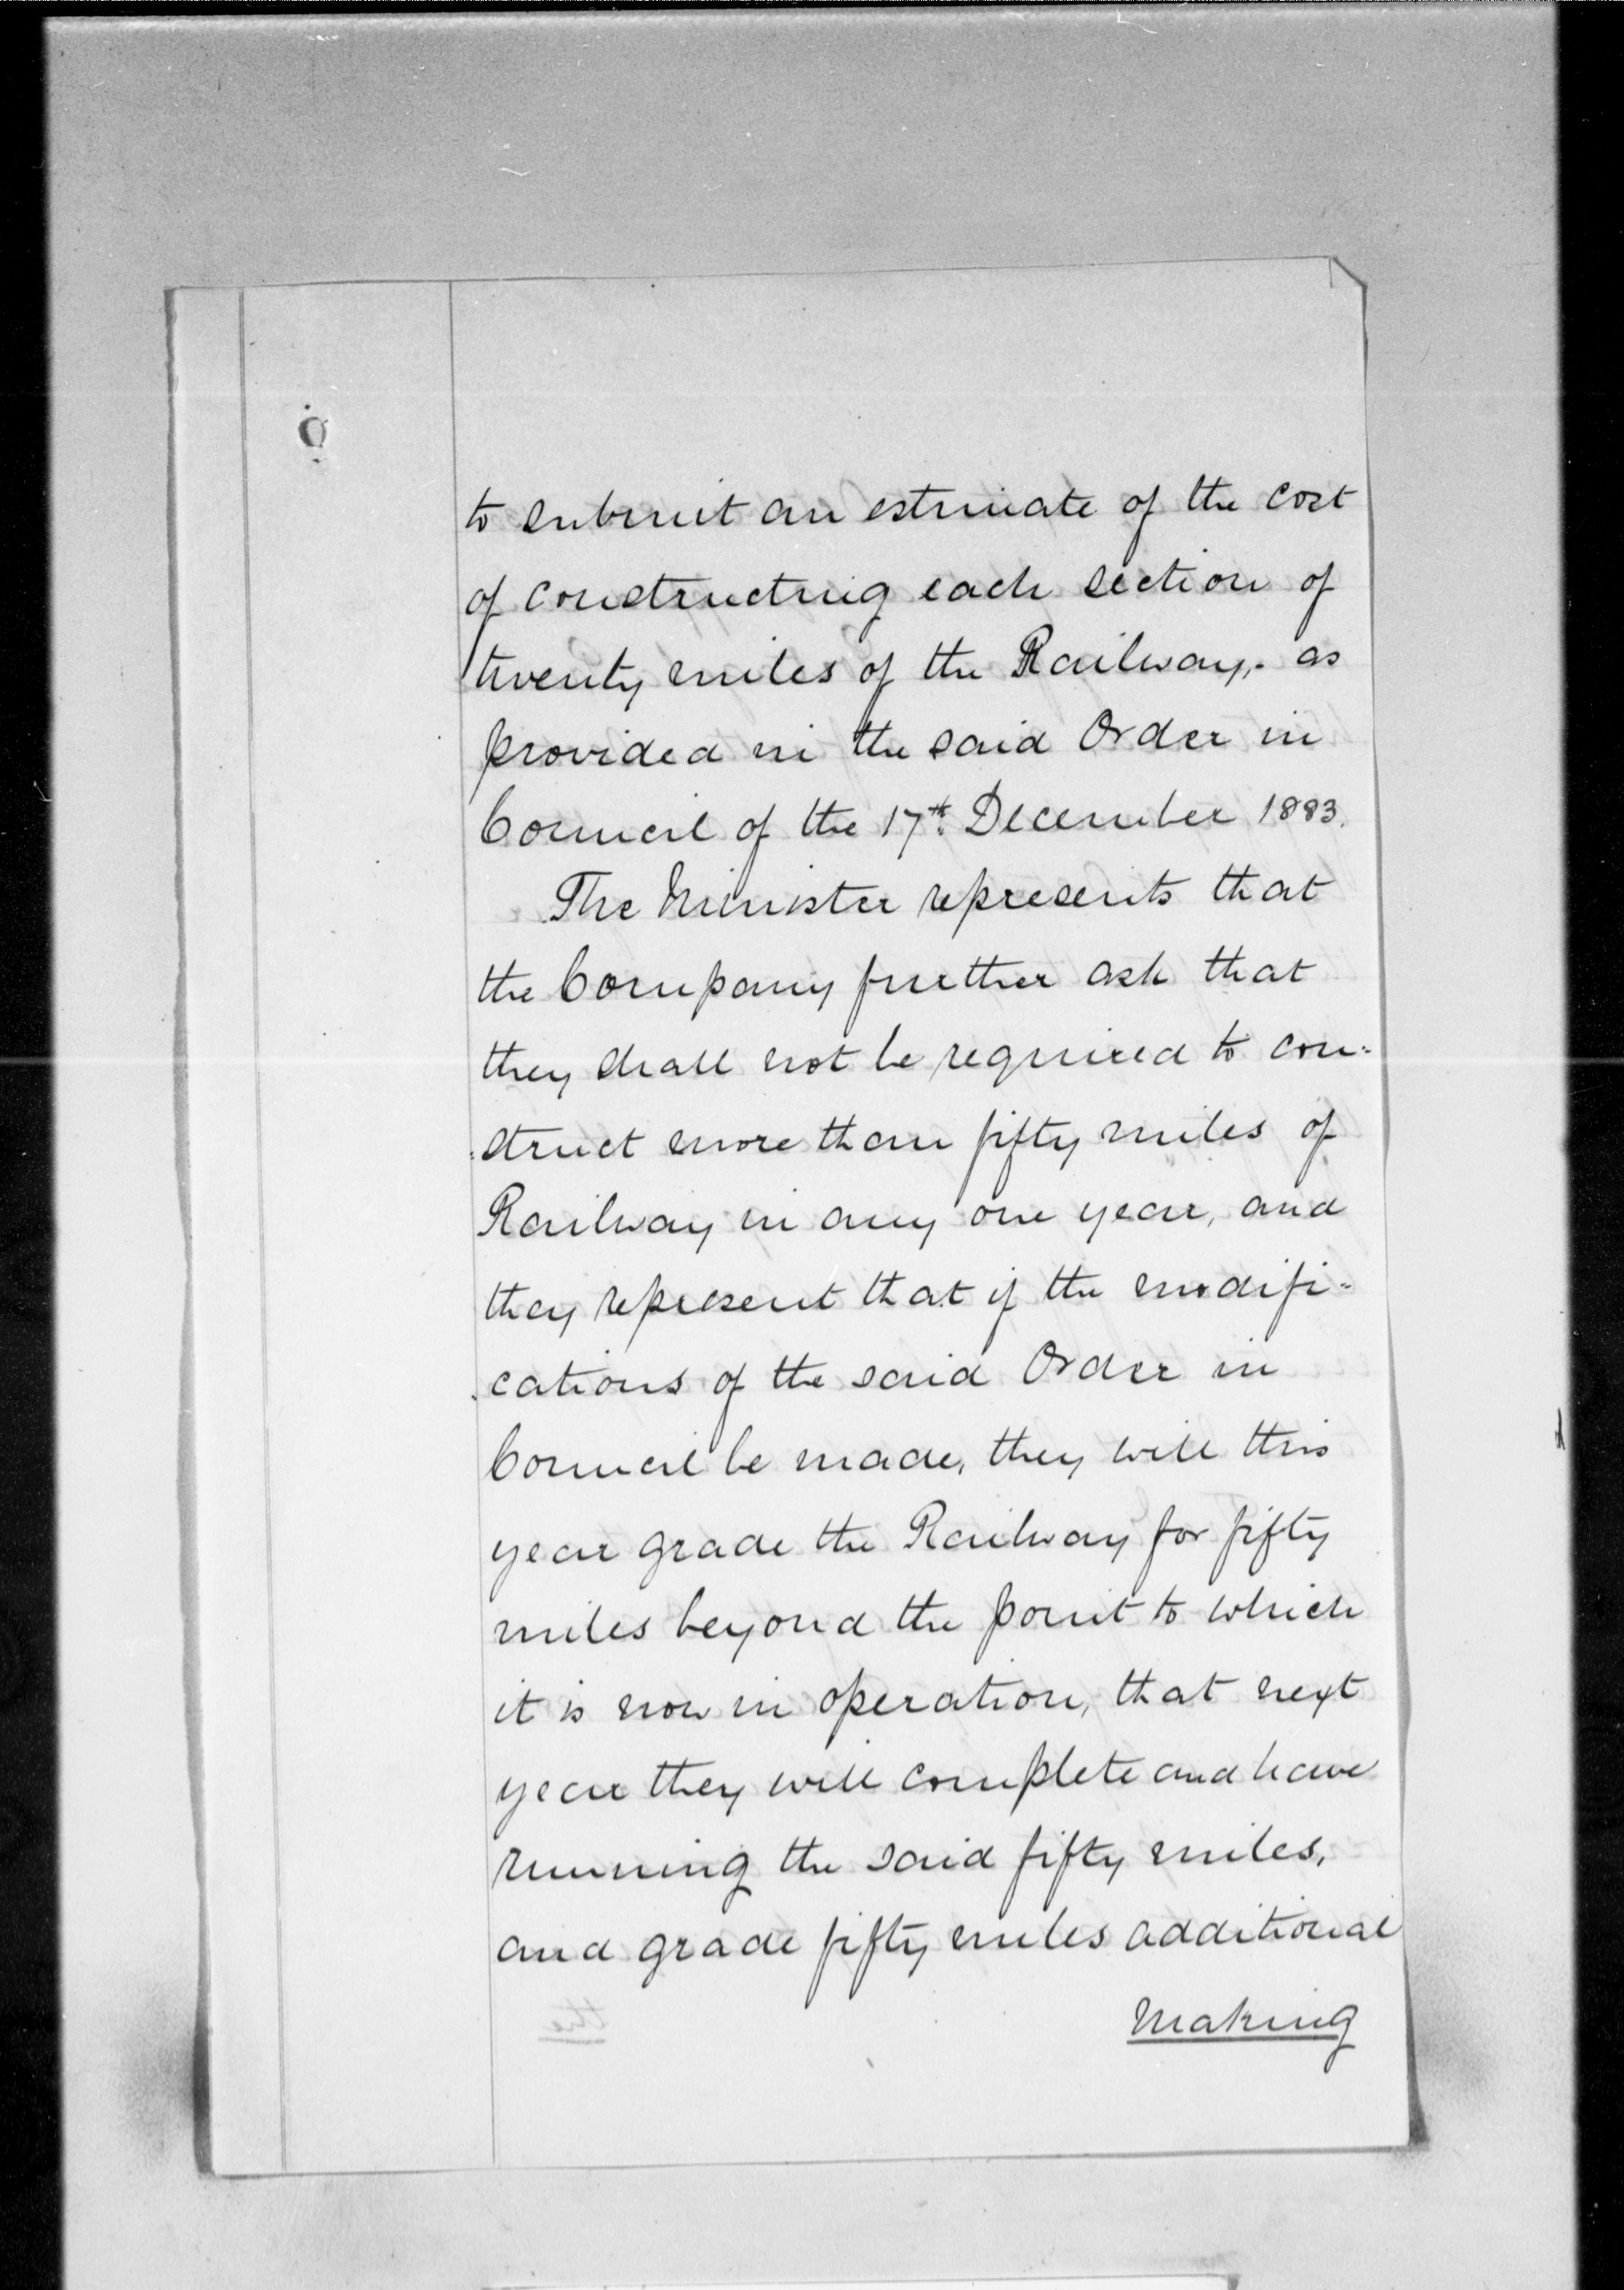 to submit an estimate of the cost
of constructing each section of
twenty miles of the Railway, as
provided in the said Order in
Council of the 17th December 1883.
The Minister represents that
the Company further ask that
they shall not be required to con-
struct more than fifty miles of
Railway in any one year, and
they represent that if the modifi-
cations of the said Order in
Council be made, they will this
year grade the Railway for fifty
miles beyond the point to which
it is now in operation, that next
year they will complete and have
running the said fifty miles,
and grade fifty miles additional
making